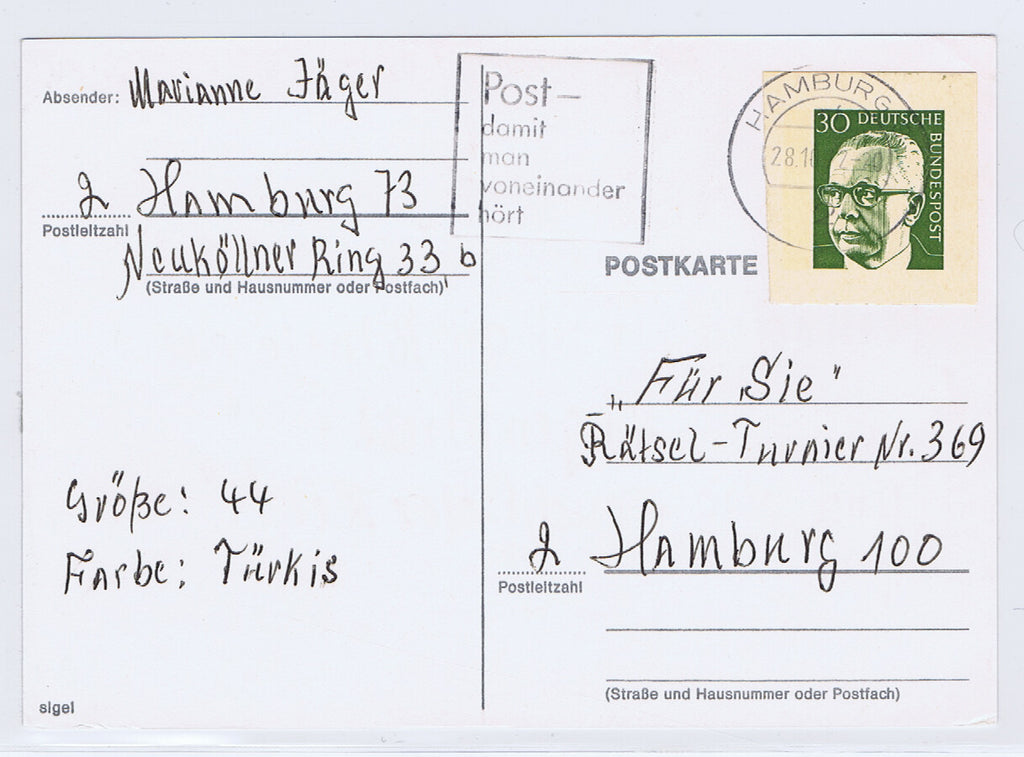 Absender: Marianne Jäger
2 Hamburg 73
Postleitzahl
Neuköllner Ring 33 b
(Straße und Hausnummer oder Postfach)
Größe: 44
Farbe: Türkis
sigel
Post-
damit
man
voneinander
hört
HAMBURG
28.10
30 DEUTSCHE BUNDESPOST
POSTKARTE
„Für Sie"
Rätsel-Turnier Nr. 369
2 Hamburg 100
Postleitzahl
(Straße und Hausnummer oder Postfach)